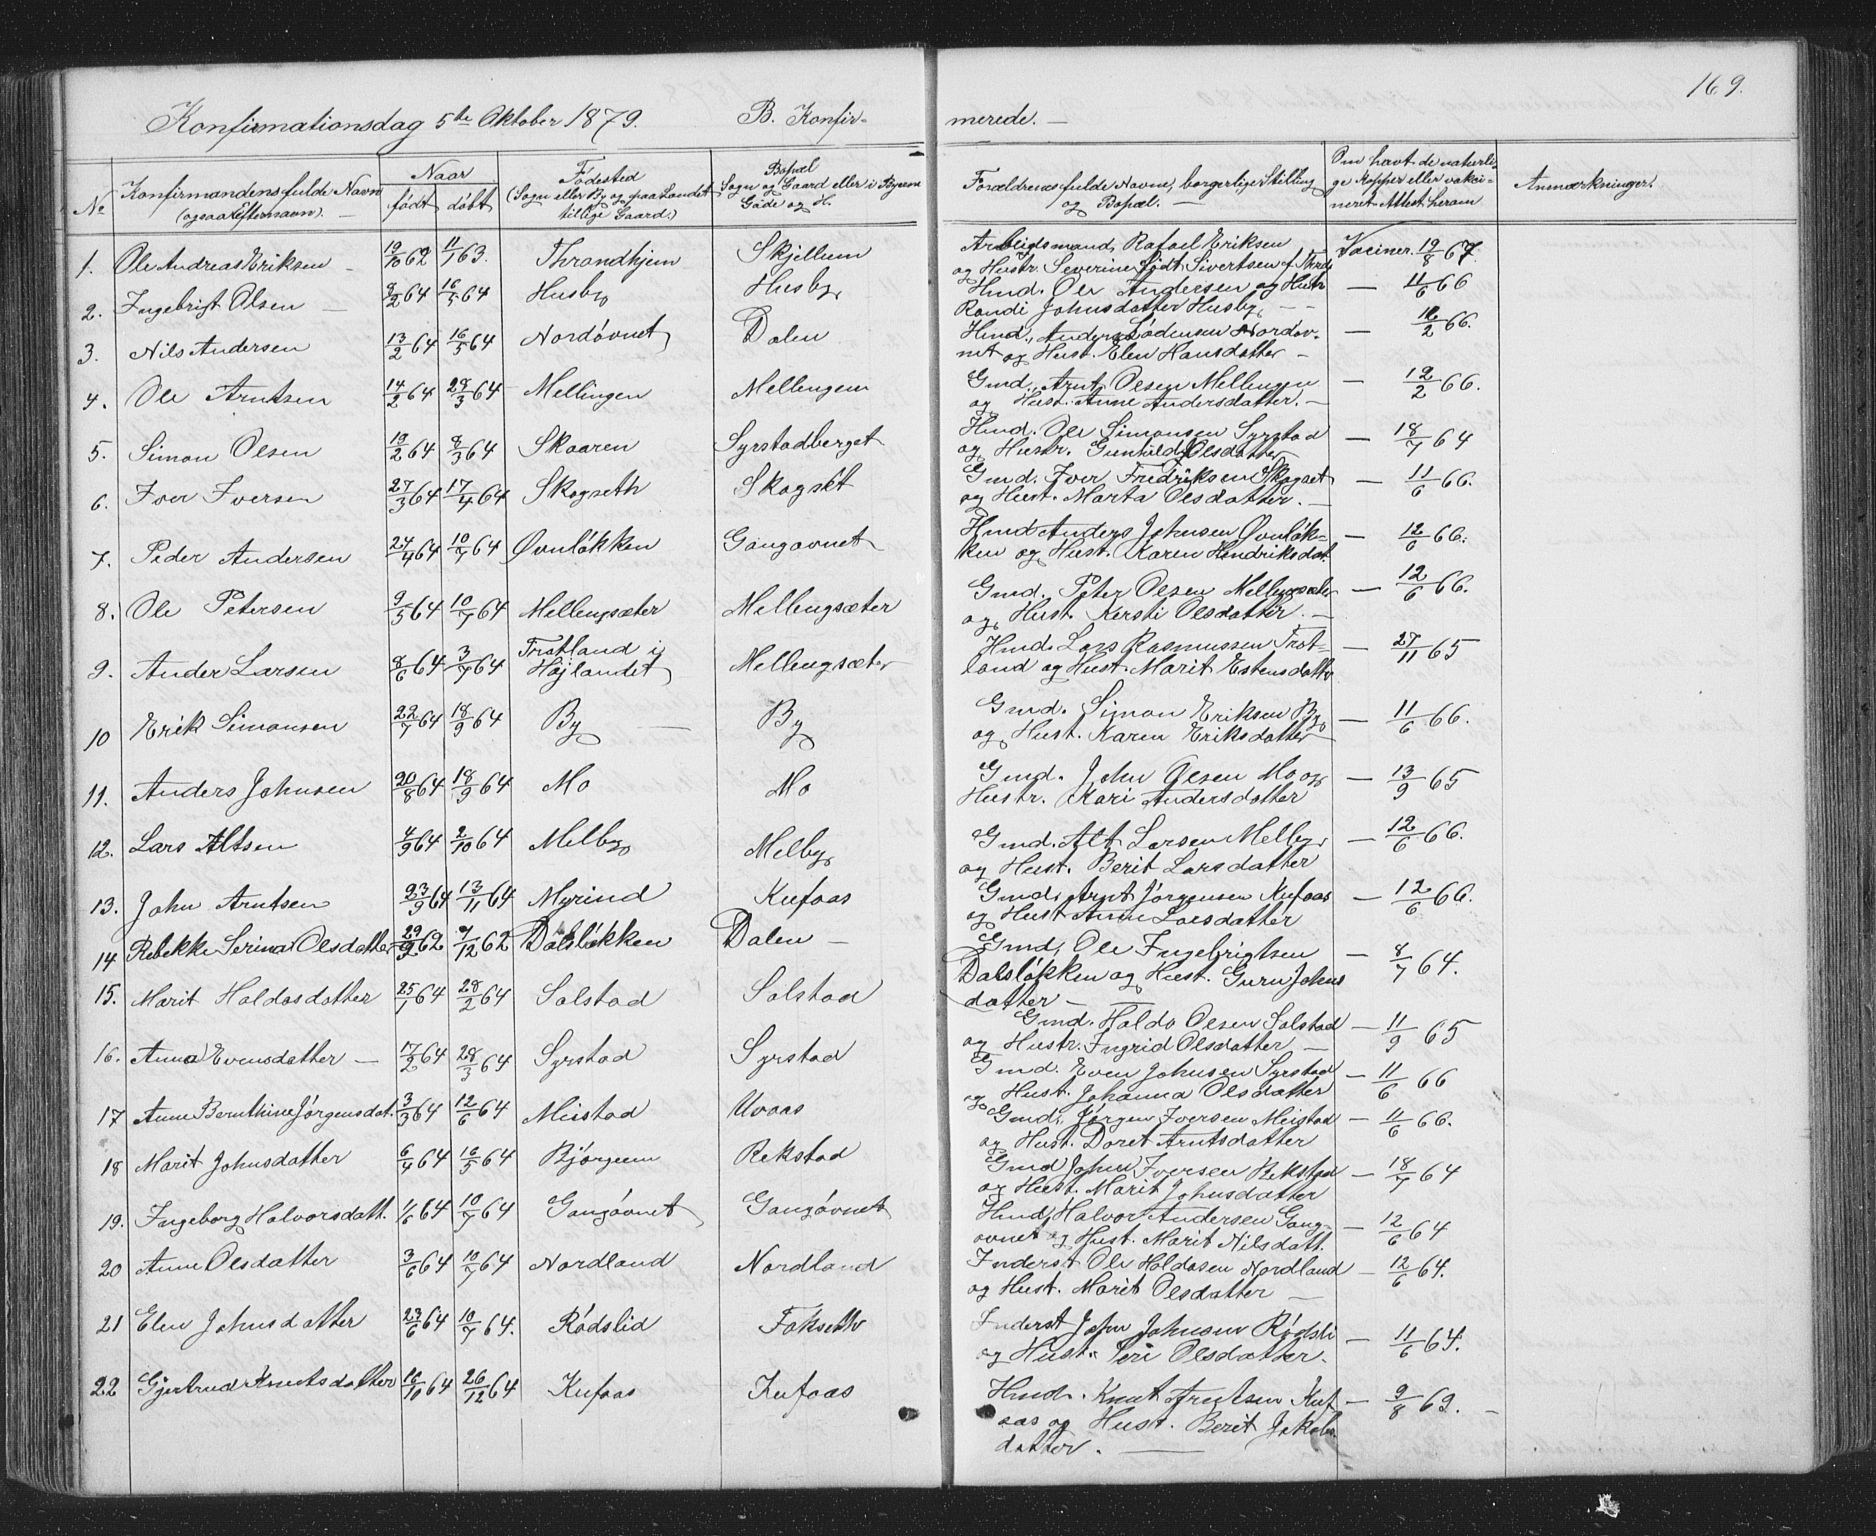 169.
Konfirmationsdag 5te Oktober 1879. B. Konfir-
merede. —
No Konfirmandens fulde Navn (ogsaa Eftermavn). — Naar født døbt Fødested (Sogn eller By og paa Landet tillige Gaard.) Bopæl Sogn og Gaard eller i Byerne Gade og H. Forældrenes fulde Navne, borgerlige Stilling og Bopæl. — Om havt de naturlige Kopper eller vakcineret Attest herom Anmærkninger.
1. Ole Andreas Eriksen 19/10 62 11/1 63. Throndhjem Skjellum Arbeidsmand Rafael Eriksen Vaciner. 19/8 67.
og Hustr. Severine født Sivertsen af Thrdh
2. Ingebrigt Olsen — 8/2 64 16/5 64 Husby Husby Hmd. Ole Andersen og Hustr — 11/6 66
Randi Johnsdatter Husby — —
3. Nils Andersen 13/2 64 16/5 64 Nordøvnet Dalen Hmd. Anders Nordøv- — 2 66.
net og Hust. Elen Hansdatter —
4. Ole Arntsen 14/2 64 28/3 64 Mellingen Mellingen Gmd. Arnt Olsen Mellingen — 12/2 66.
og Hust. Anne Andersdatter. —
5. Simon Olsen 19/2 64 8/3 64 Skaaren Syrstadberget Hmd. Ole Simonsen Syrstad — 18/7 64
og Hustr. Gunhild Olsdatter
6. Iver Iversen 27/3 64 17/4 64 Skogseth Skogset Gmd. Iver Fredriksen Skogset — 11/6 66.
og Hust. Marta Olsdatter. —
7. Peder Andersen 24/4 64 10/7 64 Øvnløkken Gangøvnet Hmd Anders Johnsen Øvnløk- — 12/6 66.
ken og Hust. Karen Hendriksdat.
8. Ole Petersen 9/5 64 10/7 64 Mellingsæter Mellingsæter Gmd. Peter Olsen Mellingsæter — 12/6 66.
og Hust. Kersti Olsdatter. —
9. Ander Larsen 8/6 64 3/7 64 Trotland i Høilandet Mellingsæter Hmd. Lars Rasmussen Trot- — 27/11 65
land og Hust. Marit Estensdatter
10 Erik Simonsen 22/7 64 18/9 64 By — By Gmd. Simon Eriksen By — 11/6 66.
og Hust. Karen Eriksdatter
11. Anders Johnsen 20/8 64 18/9 64 Mo Mo Gmd. John Olsen Mo og — 13/9 65
Hustr. Kari Andersdatter
12. Lars Altsen 4/9 64 2/10 64 Melby Melby Gmd. Alt Larsen Melby — 12/6 66.
og Hust. Berit Larsdatter
13. John Arntsen 23/9 64 13/11 64 Myrind Kufaas Gmd. Arnt Jørgensen Kufaas — 12/6 66.
og Hust Anne Larsdatter
14 Rebekke Serina Olsdatter 29/9 62 7/12 62 Dalsløkken Dalen — Gmd. Ole Ingebrigtsen — 8/7 64.
Dalsløkken og Hust. Guru Johns
datter —
15. Marit Haldosdatter 25/7 64 28/2 64 Solstad Solstad Gmd. Haldo Olsen Solstad — 11/9 65
og Hustr. Ingrid Olsdatter —
16. Anna Evensdatter — 17/2 64 28/3 64 Syrstad Syrstad Gmd. Even Johnsen Syrstad — 11/6 66
og Hust. Johanna Olsdatter
17 Anne Bernthine Jørgensdat. 3/3 64 12/6 64 Meistad Uvaas Gmd. Jørgen Iversen Meistad — 11/6 66.
og Hust. Doret Arntsdatter
18 Marit Johnsdatter 6/4 64 16/5 64 Bjørgum Rekstad Gmd John Iversen Rekstad — 18/7 64
og Hust. Marit Johnsdatter
19. Ingeborg Halvorsdatt. 1/6 64 10/7 64 Gangøvnet Gangøvnet Hmd. Halvor Andersen Gang- — 12/6 64
øvnet og Hust. Marit Nilsdatt.
20 Anne Olsdatter 3/6 64 10/7 64 Nordland Nordland Inderst Ole Haldosen Nordland — 12/6 64.
og Hust. Marit Olsdatter —
21 Elen Johnsdatter 23/6 64 10/7 64. Rødslid Fokseth Inderst John Johnsen Rødsli — 11/6 64.
og Hust. Seri Olsdatter.
22 Gjertrud Knutsdatter 16/10 64 26/12 64 Kufaas Kufaas Hmd. Knut Kuf — 9/8 69. —
aas og Hust. Berit Jakobs
datter. —